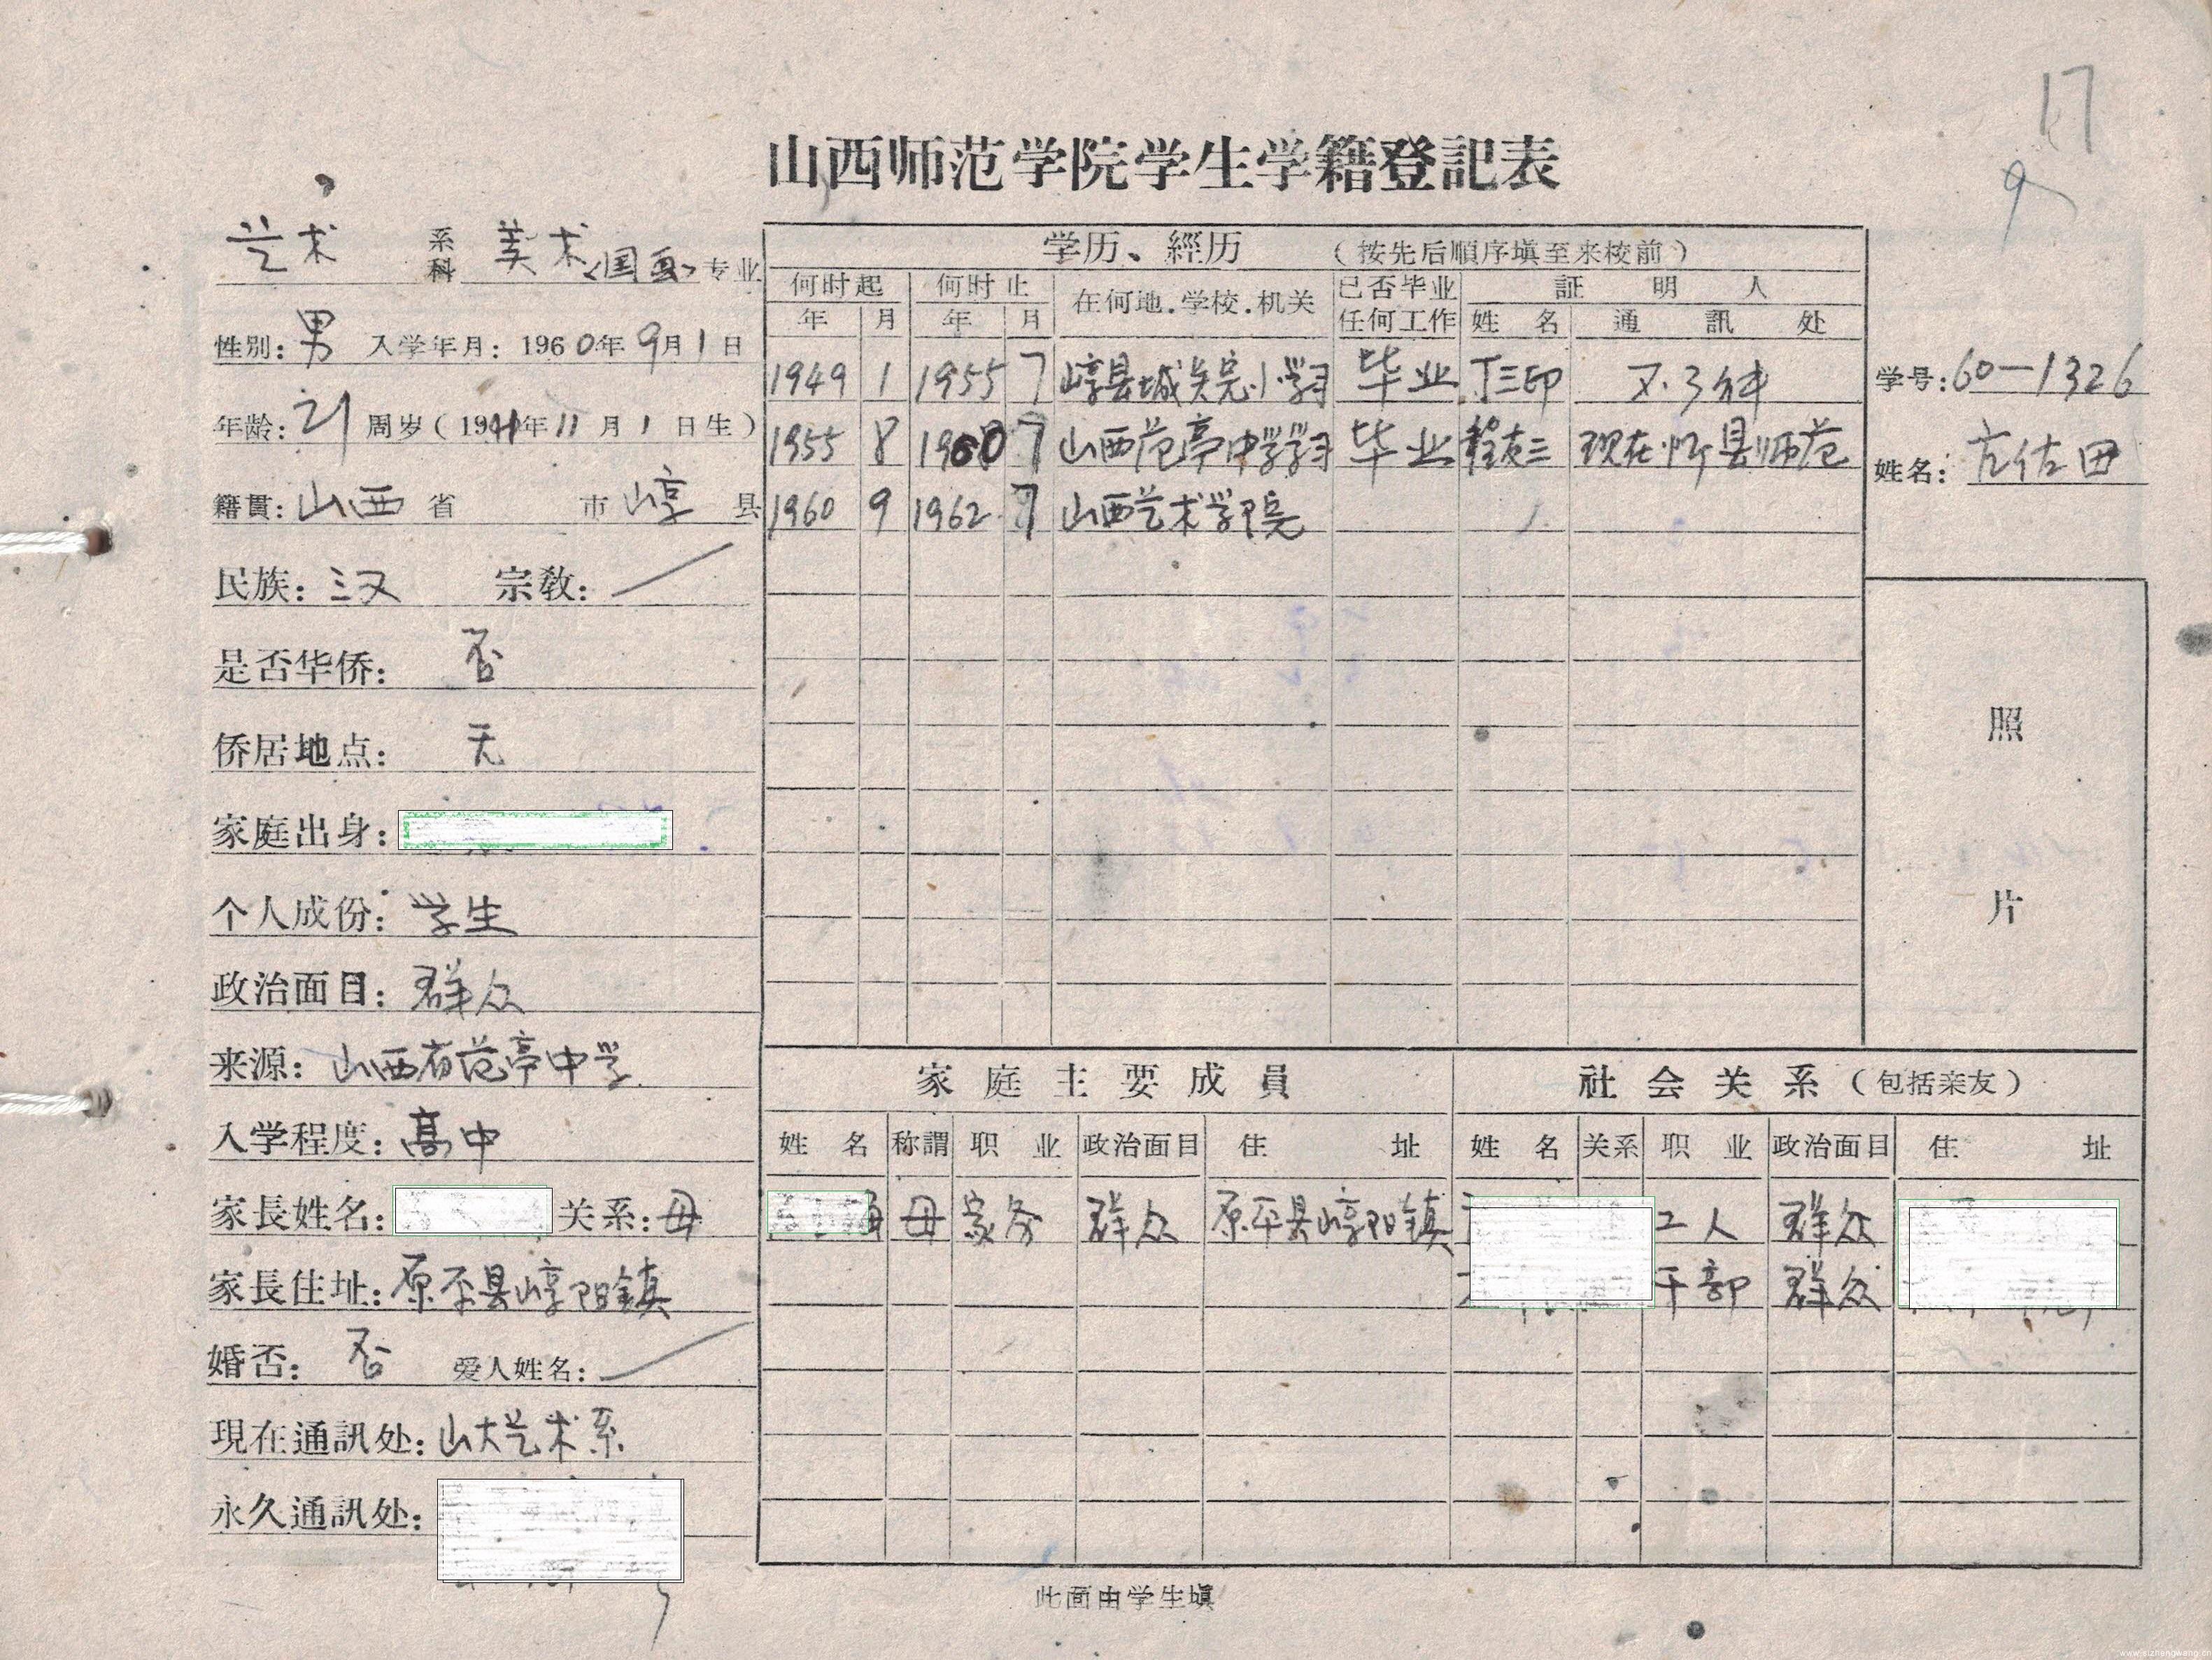 17
9
山西师范学院学生学籍登記表
艺术 系科 美术<国画> 专业
性别: 男 入学年月: 1960年9月1日
年龄: 21 周岁(1941年11月1日生)
籍貫: 山西 省 市 崞 县
民族: 汉 宗教: /
是否华侨: 否
侨居地点: 无
家庭出身:
个人成份: 学生
政治面目: 群众
来源: 山西省范亭中学
入学程度: 高中
家長姓名: 关系: 母
家長住址: 原平县崞阳镇
婚否: 否 爱人姓名: /
現在通訊处: 山大艺术系
永久通訊处:
学历、經历 (按先后順序填至来校前)
何时起 何时止 在何地.学校.机关 已否毕业 証明人
年 月 年 月 任何工作 姓名 通訊处
1949 1 1955 7 崞县城关完小学习 毕业 丁三印 不了解
1955 8 1960 7 山西范亭中学学习 毕业 程友三 现在忻县师范
1960 9 1962 7 山西艺术学院
学号: 60—1326
姓名: 亢佐田
照
片
家庭主要成員 社会关系(包括亲友)
姓名 称謂 职业 政治面目 住址 姓名 关系 职业 政治面目 住址
母 家务 群众 原平县崞阳镇 工人 群众
干部 群众
此面由学生填